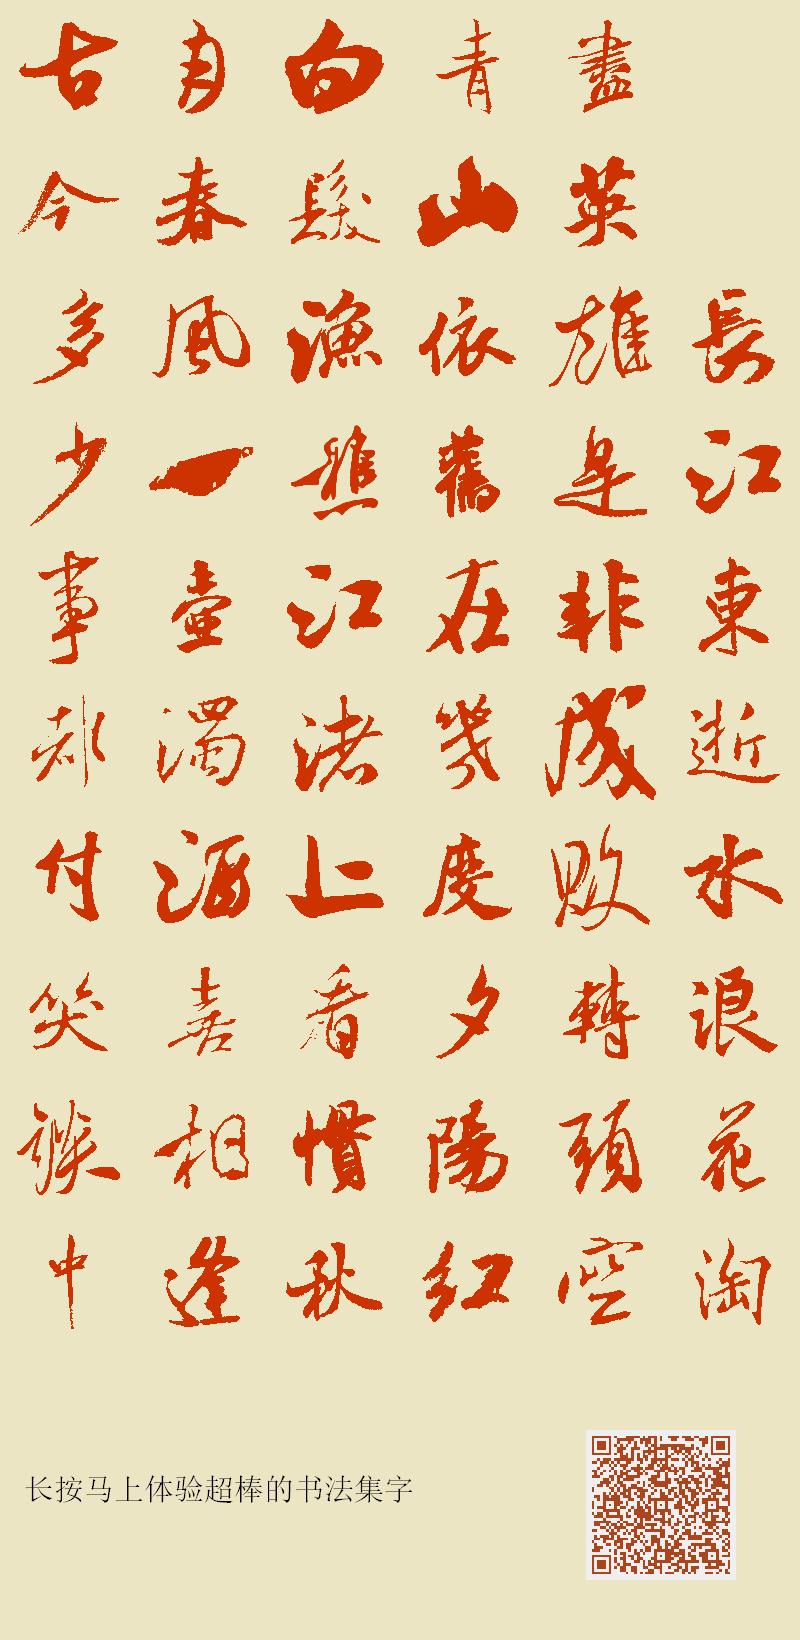 長江東逝水浪花淘
盡英雄是非成敗轉頭空
青山依舊在幾度夕陽紅
白髮漁樵江渚上看慣秋
月春風一壺濁酒喜相逢
古今多少事都付笑談中
长按马上体验超棒的书法集字